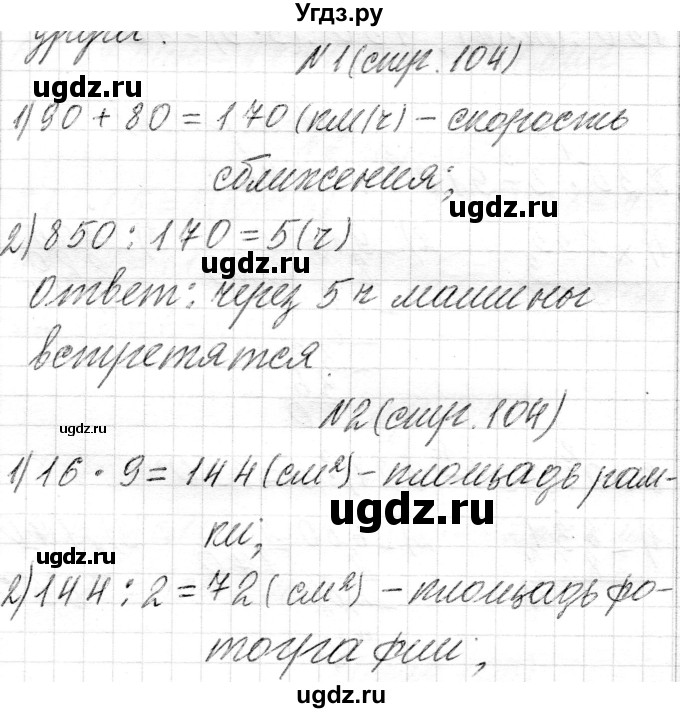 Угдз.ру
друга.
N1(стр. 104)
ugdz.ru
1) 90 + 80 = 170 (км/ч) – скорость
сближения;
ugdz.ru
2) 850 : 170 = 5(ч)
ugdz.ru
Ответ: через 5 ч машины
встретятся.
ugdz.ru
N2(стр. 104)
1) 16 · 9 = 144 (см²) – площадь рам-
ugdz.ru
ки;
ugdz.ru
2) 144 : 2 = 72 (см²) – площадь фо-
ugdz.ru
тографии;
ugdz.ru